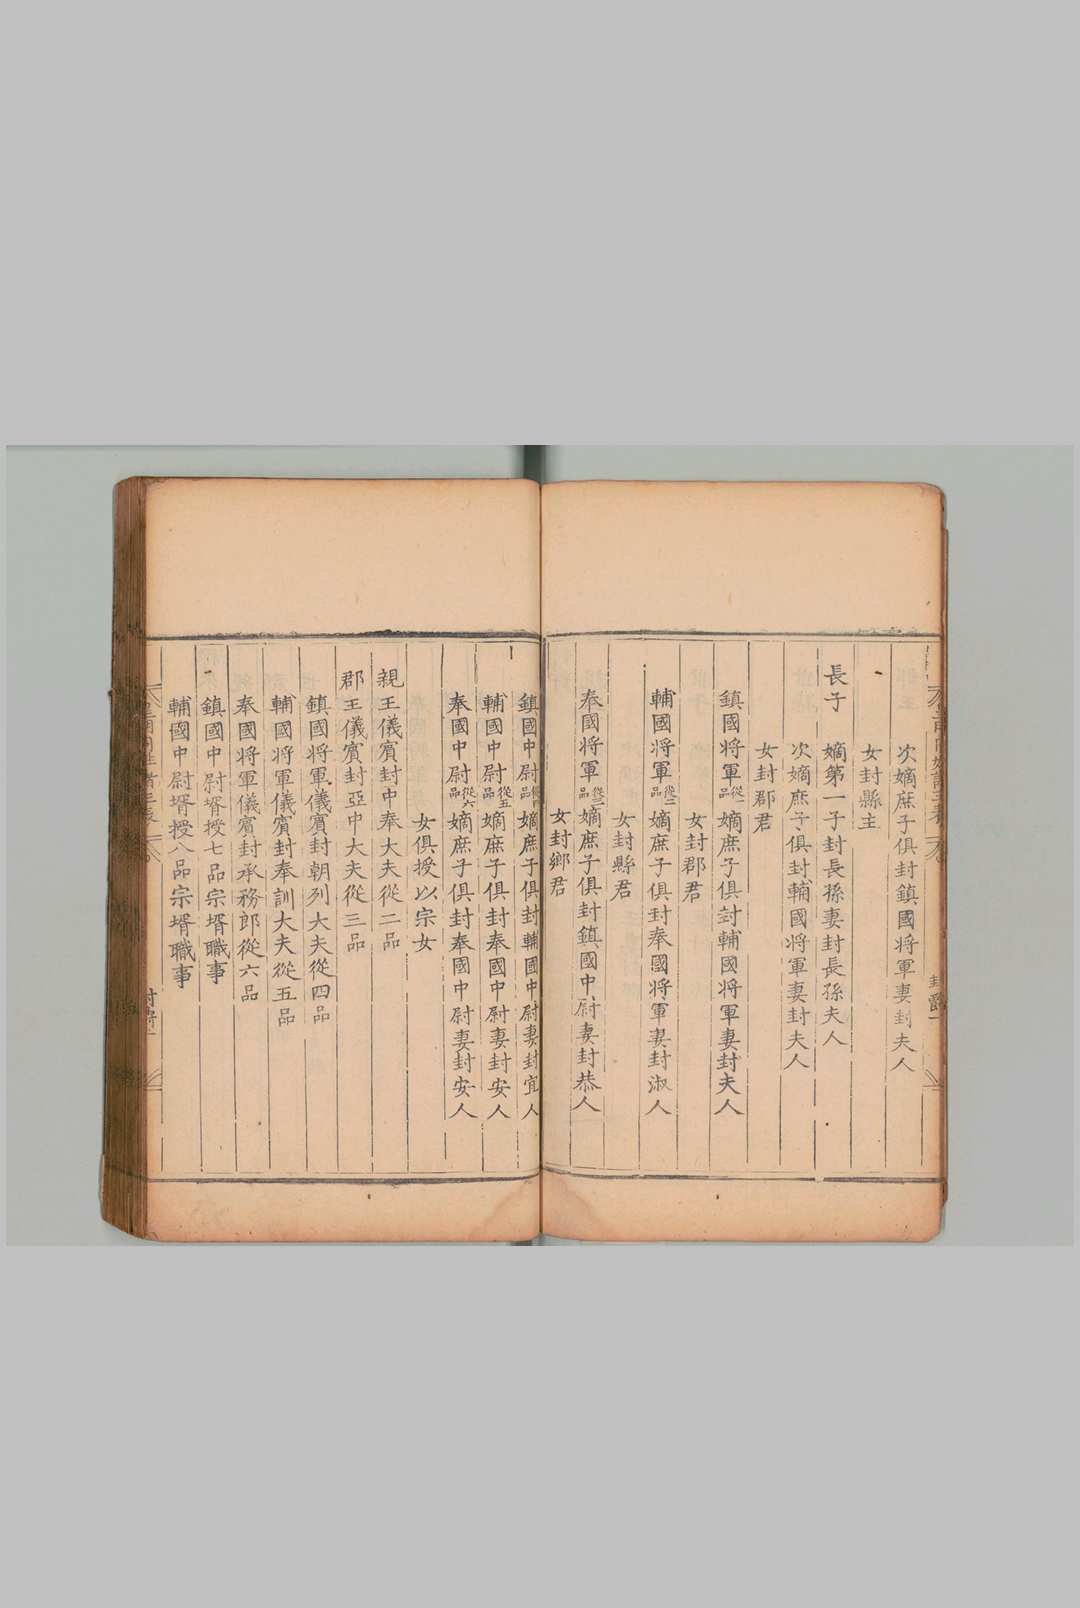 次嫡庶子俱封鎮國將軍妻封夫人
女封縣主
長子　嫡第一子封長孫妻封長孫夫人
次嫡庶子俱封輔國將軍妻封夫人
女封郡君
鎮國將軍從一品嫡庶子俱封輔國將軍妻封夫人
女封郡君
輔國將軍從二品嫡庶子俱封奉國將軍妻封淑人
女封縣君
奉國將軍從三品嫡庶子俱封鎮國中尉妻封恭人
女封鄉君
鎮國中尉從四品嫡庶子俱封輔國中尉妻封宜人
輔國中尉從五品嫡庶子俱封奉國中尉妻封安人
奉國中尉從六品嫡庶子俱封奉國中尉妻封安人
女俱授以宗女
親王儀賓封中奉大夫從二品
郡王儀賓封亞中大夫從三品
鎮國將軍儀賓封朝列大夫從四品
輔國將軍儀賓封奉訓大夫從五品
奉國將軍儀賓封承務郎從六品
鎮國中尉壻授七品宗壻職事
輔國中尉壻授八品宗壻職事